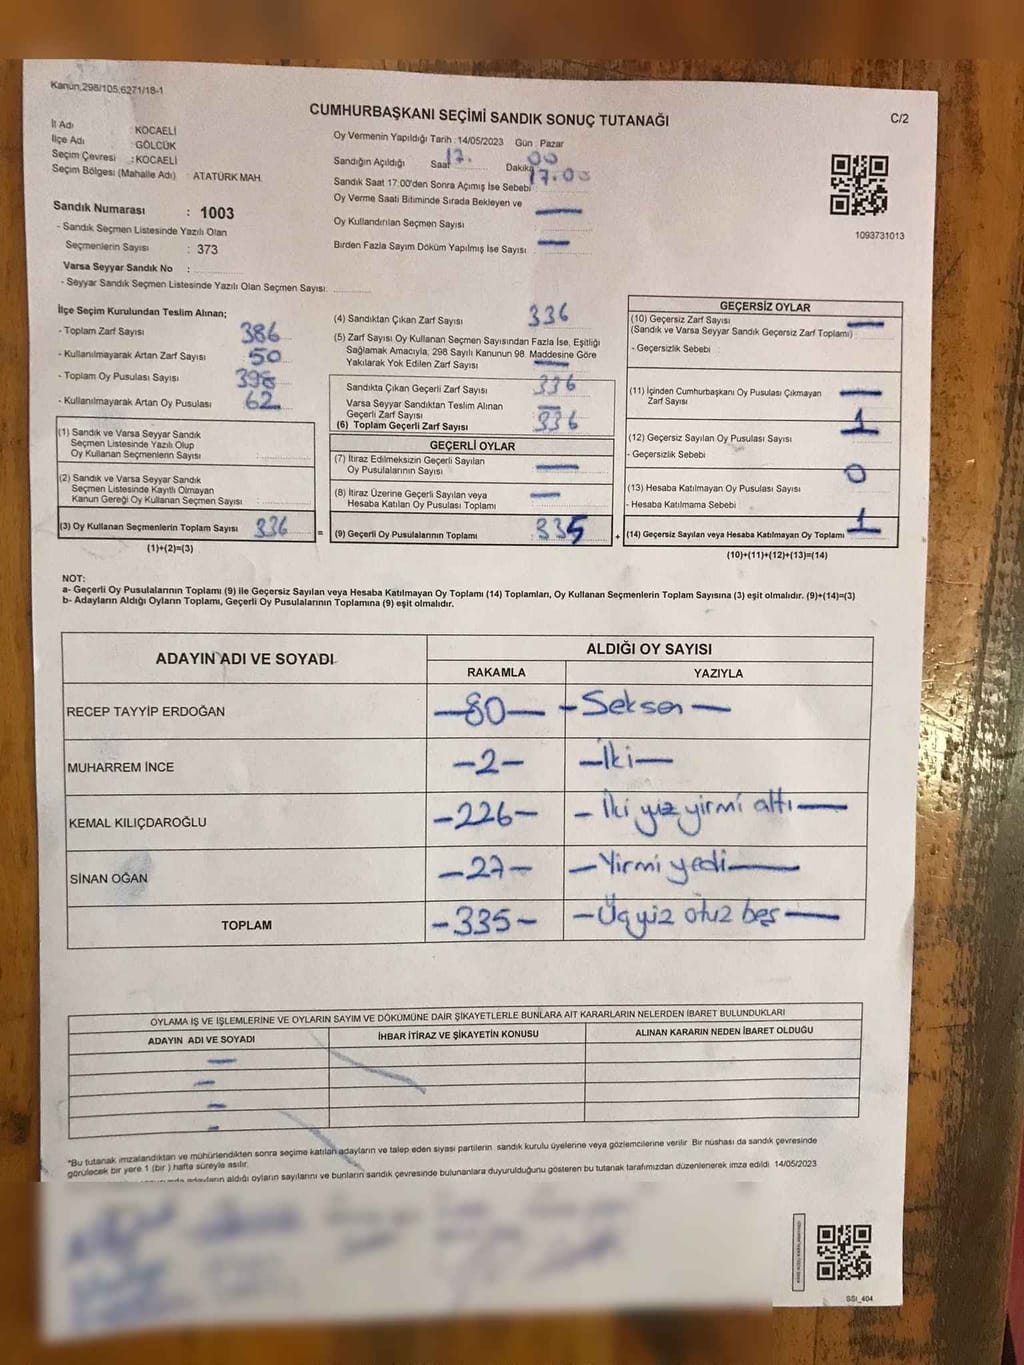 Kanun:298/105,6271/18-1
CUMHURBAŞKANI SEÇİMİ SANDIK SONUÇ TUTANAĞI
C/2
İl Adı : KOCAELİ
İlçe Adı : GÖLCÜK
Seçim Çevresi : KOCAELİ
Seçim Bölgesi (Mahalle Adı) : ATATÜRK MAH.
Sandık Numarası : 1003
- Sandık Seçmen Listesinde Yazılı Olan
Seçmenlerin Sayısı : 373
Varsa Seyyar Sandık No :
- Seyyar Sandık Seçmen Listesinde Yazılı Olan Seçmen Sayısı:
Oy Vermenin Yapıldığı Tarih : 14/05/2023 Gün : Pazar
Sandığın Açıldığı Saat 17. Dakika 00
Sandık Saat 17.00'den Sonra Açılmış İse Sebebi : 17.00
Oy Verme Saati Bitiminde Sırada Bekleyen ve
Oy Kullandırılan Seçmen Sayısı
Birden Fazla Sayım Döküm Yapılmış İse Sayısı
1093731013
İlçe Seçim Kurulundan Teslim Alınan;
- Toplam Zarf Sayısı 386
- Kullanılmayarak Artan Zarf Sayısı 50
- Toplam Oy Pusulası Sayısı 398
- Kullanılmayarak Artan Oy Pusulası 62
(1) Sandık ve Varsa Seyyar Sandık
Seçmen Listesinde Yazılı Olup
Oy Kullanan Seçmenlerin Sayısı :
(2) Sandık ve Varsa Seyyar Sandık
Seçmen Listesinde Kayıtlı Olmayan
Kanun Gereği Oy Kullanan Seçmen Sayısı :
(3) Oy Kullanan Seçmenlerin Toplam Sayısı 336
(1)+(2)=(3)
=
(4) Sandıktan Çıkan Zarf Sayısı 336
(5) Zarf Sayısı Oy Kullanan Seçmen Sayısından Fazla İse, Eşitliği
Sağlamak Amacıyla, 298 Sayılı Kanunun 98. Maddesine Göre
Yakılarak Yok Edilen Zarf Sayısı
Sandıkta Çıkan Geçerli Zarf Sayısı 336
Varsa Seyyar Sandıktan Teslim Alınan
Geçerli Zarf Sayısı
(6) Toplam Geçerli Zarf Sayısı 336
GEÇERLİ OYLAR
(7) İtiraz Edilmeksizin Geçerli Sayılan
Oy Pusulalarının Sayısı
(8) İtiraz Üzerine Geçerli Sayılan veya
Hesaba Katılan Oy Pusulası Toplamı
(9) Geçerli Oy Pusulalarının Toplamı 335
+
GEÇERSİZ OYLAR
(10) Geçersiz Zarf Sayısı
(Sandık ve Varsa Seyyar Sandık Geçersiz Zarf Toplamı)
- Geçersizlik Sebebi
(11) İçinden Cumhurbaşkanı Oy Pusulası Çıkmayan
Zarf Sayısı
(12) Geçersiz Sayılan Oy Pusulası Sayısı 1
- Geçersizlik Sebebi
(13) Hesaba Katılmayan Oy Pusulası Sayısı 0
- Hesaba Katılmama Sebebi
(14) Geçersiz Sayılan veya Hesaba Katılmayan Oy Toplamı 1
(10)+(11)+(12)+(13)=(14)
NOT:
a- Geçerli Oy Pusulalarının Toplamı (9) ile Geçersiz Sayılan veya Hesaba Katılmayan Oy Toplamı (14) Toplamları, Oy Kullanan Seçmenlerin Toplam Sayısına (3) eşit olmalıdır. (9)+(14)=(3)
b- Adayların Aldığı Oyların Toplamı, Geçerli Oy Pusulalarının Toplamına (9) eşit olmalıdır.
ADAYIN ADI VE SOYADI
ALDIĞI OY SAYISI
RAKAMLA YAZIYLA
RECEP TAYYİP ERDOĞAN -80- -Seksen-
MUHARREM İNCE -2- -İki-
KEMAL KILIÇDAROĞLU -226- -İki yüz yirmi altı-
SİNAN OĞAN -27- -Yirmi yedi-
TOPLAM -335- -Üçyüz otuz beş-
OYLAMA İŞ VE İŞLEMLERİNE VE OYLARIN SAYIM VE DÖKÜMÜNE DAİR ŞİKAYETLERLE BUNLARA AİT KARARLARIN NELERDEN İBARET BULUNDUKLARI
ADAYIN ADI VE SOYADI İHBAR İTİRAZ VE ŞİKAYETİN KONUSU ALINAN KARARIN NEDEN İBARET OLDUĞU
*Bu tutanak imzalandıktan ve mühürlendikten sonra seçime katılan adayların ve talep eden siyasi partilerin sandık kurulu üyelerine veya gözlemcilerine verilir. Bir nüshası da sandık çevresinde
görülecek bir yere 1 (bir) hafta süreyle asılır.
adayların aldığı oyların sayılarını ve bunların sandık çevresinde bulunanlara duyurulduğunu gösteren bu tutanak tarafımızdan düzenlenerek imza edildi. 14/05/2023
SSI_404